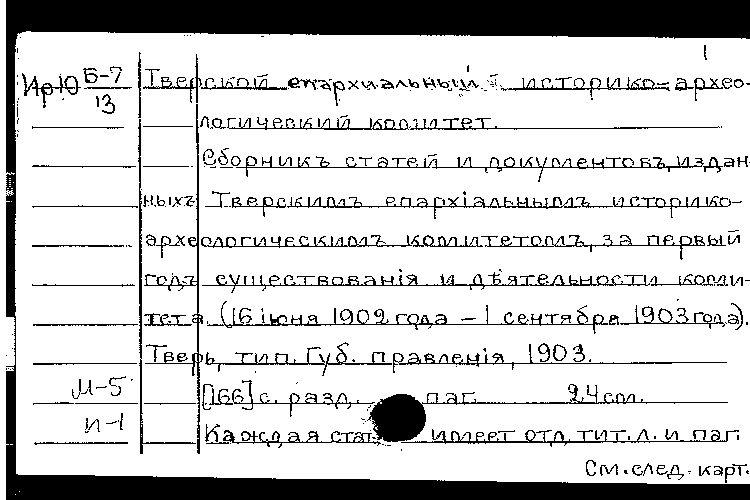 1
Ир10 Б-7/13 Тверской епархиальный историко-архео-
логический комитет.
Сборникъ статей и документовъ, издан-
ныхъ Тверскимъ епархіальнымъ историко-
археологическимъ комитетомъ, за первый
годъ существованія и дѣятельности коми-
тета. (16 іюня 1902 года – 1 сентября 1903 года).
Тверь, тип. Губ. правленія, 1903.
М-5 [166] с. разд. паг. 24 см.
И-1 Каждая имеет отд. тит. л. и паг.
См. след. карт.